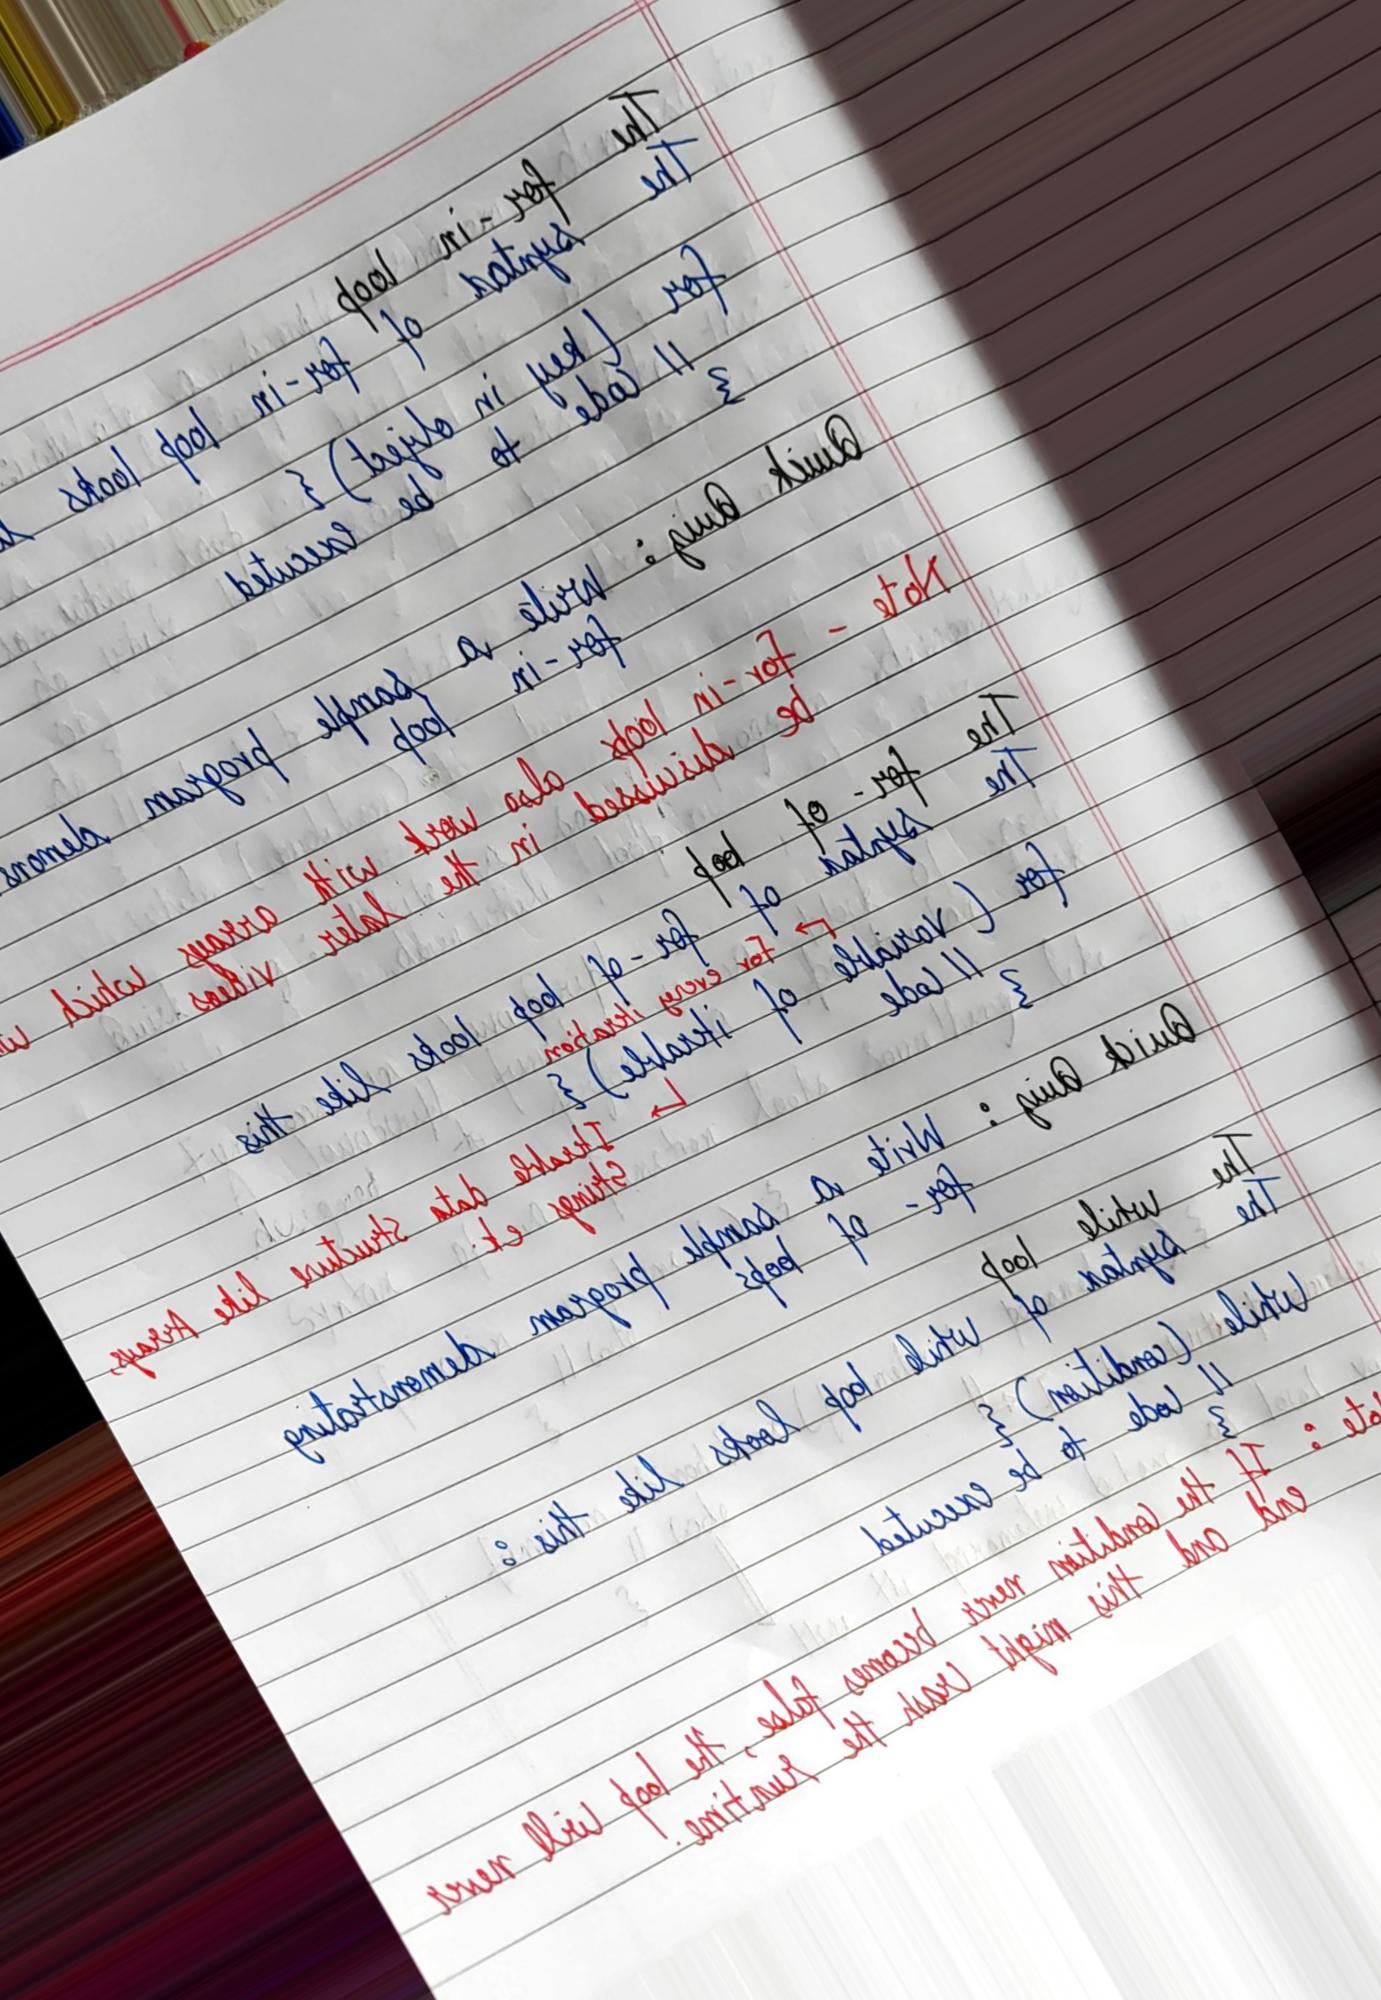 The for-in loop
The syntax of for-in loop looks
for (key in object) {
// code to be executed
}
Quick Quiz : Write a sample program demons
for-in loop
Note - for-in loop also work with arrays which
be discussed in the later videos
The for-of loop
The syntax of for-of loop looks like this
↳ for every iteration
for (variable of iterable) {
// code
}
↳ Iterable data structure like Arrays,
Strings etc
Quick Quiz : Write a sample program demonstrating
for-of loops
The while loop
The syntax of while loop looks like this :
while (condition) {
// code to be executed
}
ote : If the condition never becomes false, the loop will never
end and this might crash the runtime.